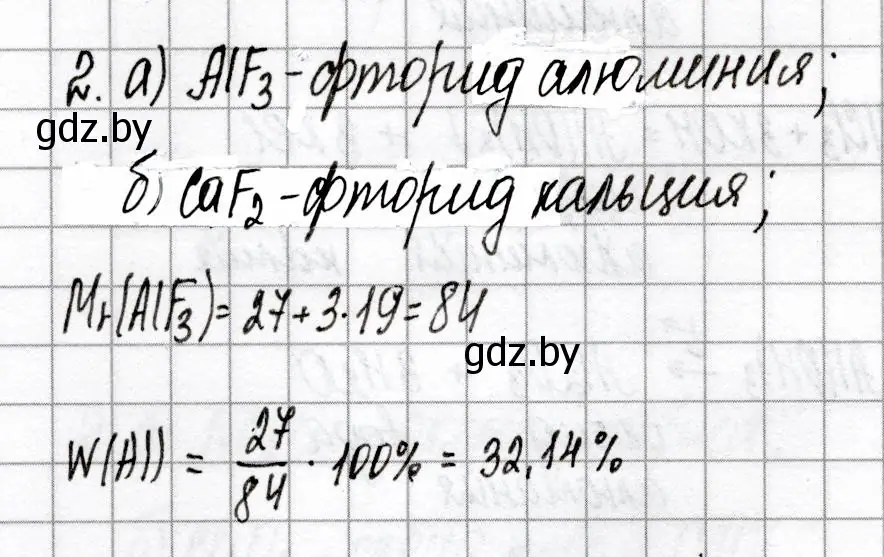 2. а) AlF₃ - фторид алюминия;
gdz.by
б) CaF₂ - фторид кальция;
Mr(AlF₃) = 27 + 3·19 = 84
gdz.by
W(Al) = 27/84 · 100% = 32,14%